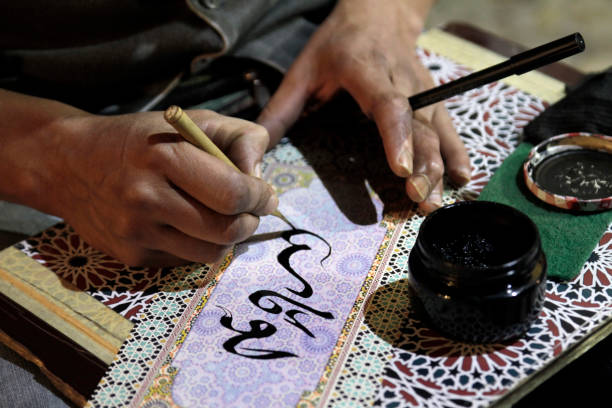 لوكاس